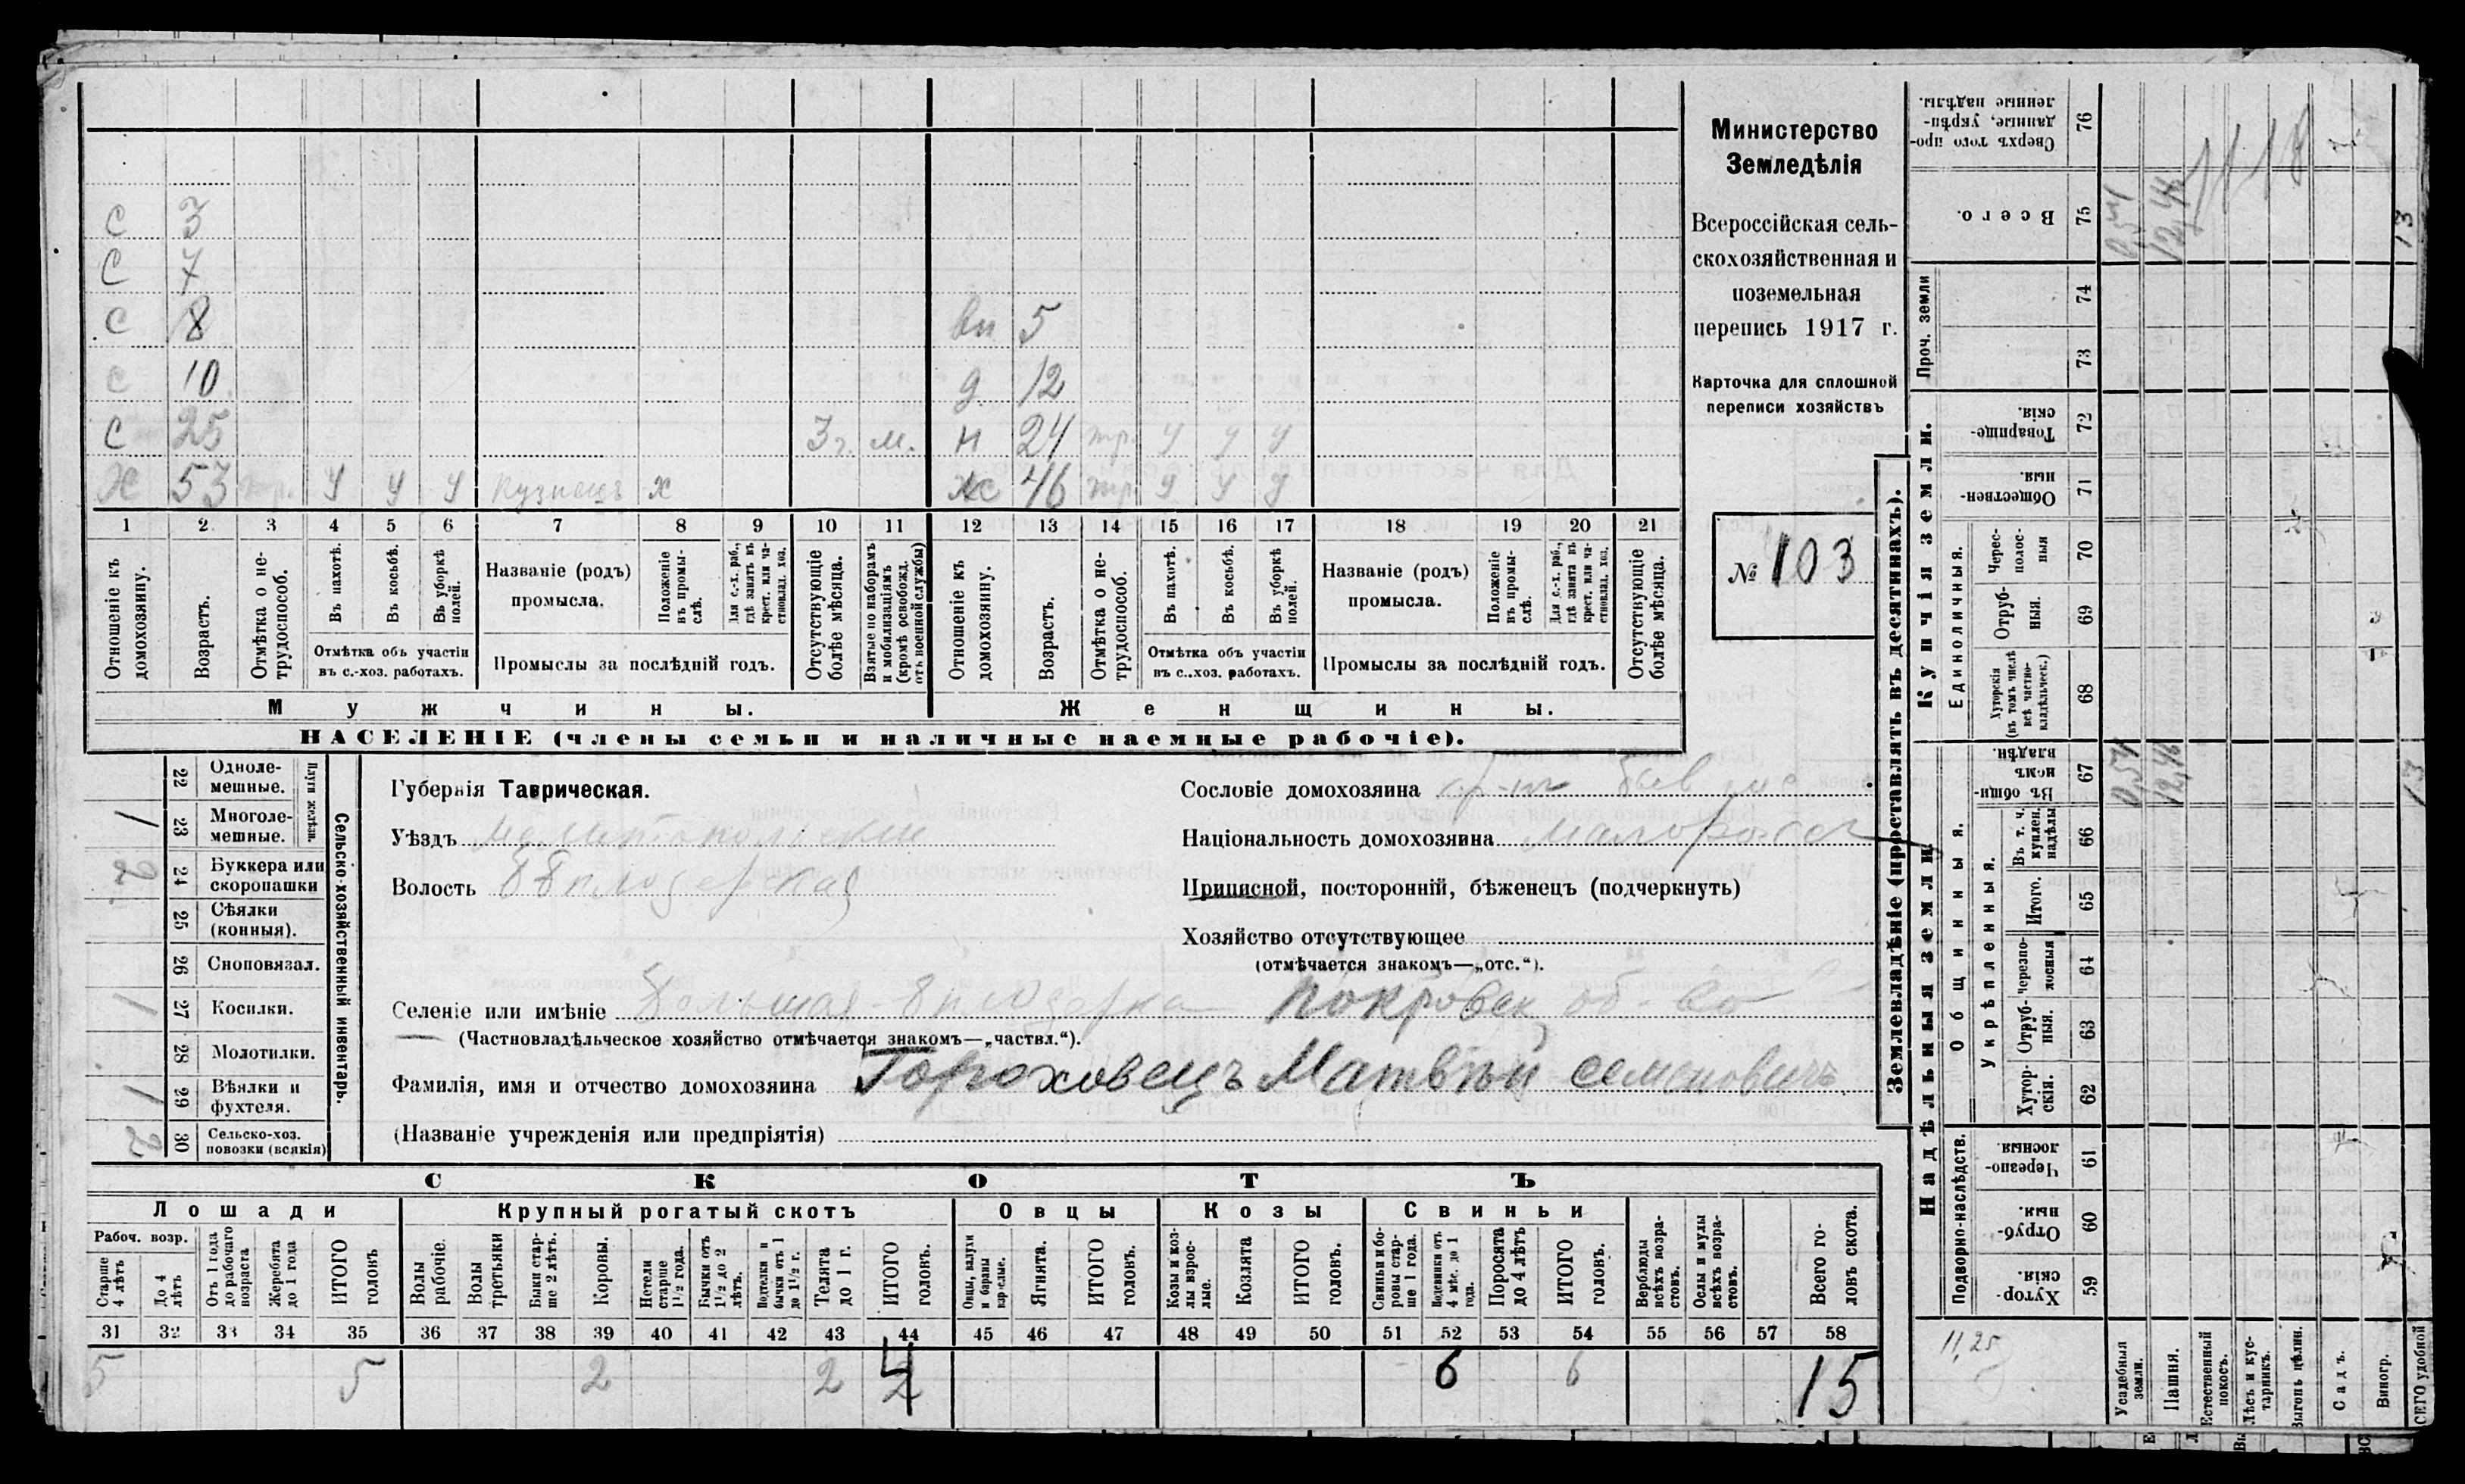 С 3
С 7
С 8 вн 5
С 10 д 12
С 25 3 г. м. н 24 тр. У У У
Х 53 тр. У У У кузнецъ х ж 46 тр У У У
1 2 3 4 5 6 7 8 9 10 11 12 13 14 15 16 17 18 19 20 21
Отношеніе къ домохозяину.
Возрастъ.
Отмѣтка о нетрудоспособ.
Въ пахотѣ.
Въ косьбѣ.
Въ уборкѣ полей.
Отмѣтка объ участіи
въ с.-хоз. работахъ.
Названіе (родъ)
промысла.
Положеніе въ промыслѣ.
Для с.-х. раб., гдѣ занятъ въ крест. или частновлад. хоз.
Промыслы за послѣдній годъ.
Отсутствующіе болѣе мѣсяца.
Взятые по наборамъ и мобилизаціямъ (кромѣ освобожд. отъ военной службы)
Отношеніе къ домохозяину.
Возрастъ.
Отмѣтка о нетрудоспособ.
Въ пахотѣ.
Въ косьбѣ.
Въ уборкѣ полей.
Отмѣтка объ участіи
въ с..хоз. работахъ.
Названіе (родъ)
промысла.
Положеніе въ промыслѣ.
Для с.-х. раб., гдѣ занята въ крест. или частновлад. хоз.
Промыслы за послѣдній годъ.
Отсутствующіе болѣе мѣсяца.
Мужчины.
Женщины.
НАСЕЛЕНІЕ (члены семьи и наличные наемные рабочіе).
Министерство
Земледѣлія
Всероссійская сель-
скохозяйственная и
поземельная
перепись 1917 г.
Карточка для сплошной
переписи хозяйствъ
№ 103
Сельско-хозяйственный инвентарь.
Плуги желѣзн.
22 Однолемешные.
1 23 Многолемешные.
2 24 Буккера или скоропашки
25 Сѣялки (конныя).
26 Сноповязал.
1 27 Косилки.
28 Молотилки.
1 29 Вѣялки и фухтеля.
2 30 Сельско-хоз. повозки (всякія)
Губернія Таврическая.
Уѣздъ Мелитопольскій
Волость Б Бѣлозерская
Селеніе или имѣніе Большая Бѣлозерка Покровск об-во
(Частновладѣльческое хозяйство отмѣчается знакомъ—„частвл.“).
Фамилія, имя и отчество домохозяина Гороховецъ Матвѣй Семеновичъ
(Названіе учрежденія или предпріятія)
Сословіе домохозяина кр-нъ
Національность домохозяина малороссъ
Приписной, посторонній, бѣженецъ (подчеркнуть)
Хозяйство отсутствующее
(отмѣчается знакомъ—„отс.“).
СКОТЪ
Лошади
Рабоч. возр.
Старше 4 лѣтъ
До 4 лѣтъ
Отъ 1 года до рабочаго возраста
Жеребята до 1 года
ИТОГО головъ
Крупный рогатый скотъ
Волы рабочіе.
Волы третьяки
Быки старше 2 лѣтъ.
Коровы.
Нетели старше 1½ года.
Бычки отъ 1½ до 2 лѣтъ.
Подтелки и бычки отъ 1 до 1½ г.
Телята до 1 г.
ИТОГО головъ.
Овцы
Овцы, валухи и бараны взрослые.
Ягнята.
ИТОГО головъ.
Козы
Козы и козлы взрослые.
Козлята
ИТОГО головъ.
Свиньи
Свиньи и боровы старше 1 года.
Подсвинки отъ 4 мѣс. до 1 года.
Поросята до 4 лѣтъ
ИТОГО головъ.
Верблюды всѣхъ возрастовъ.
Ослы и мулы всѣхъ возрастовъ.
Всего головъ скота.
31 32 33 34 35 36 37 38 39 40 41 42 43 44 45 46 47 48 49 50 51 52 53 54 55 56 57 58
5 5 2 2 4 6 6 15
Землевладѣніе (проставлять въ десятинахъ).
Надѣльныя земли
Купчія земли.
Проч. земли
Подворно-наслѣдств.
Общинныя.
Укрѣпленныя.
Единоличныя.
Сверхъ того проданные, укрѣпленные надѣлы. 76
Всего. 75
74
73
Товарищескія. 72
Общественныя. 71
Чересполосныя 70
Отрубныя. 69
Хуторскія (въ томъ числѣ всѣ частновладѣльческ.) 68
Въ общинномъ владѣн. 67
Въ т. ч. куплен. надѣлы 66
Итого. 65
Черезполосныя 64
Отрубныя. 63
Хуторскія. 62
Черезполосныя 61
Отрубныя. 60
Хуторскія. 59
11,25
Усадебныя земли. 0,54 0,54
Пашня. 12,46 12,46
Естественный покосъ.
Лѣсъ и кустарникъ.
Выгонъ цѣлин.
Садъ.
Виногр.
ВСЕГО удобной 13 13